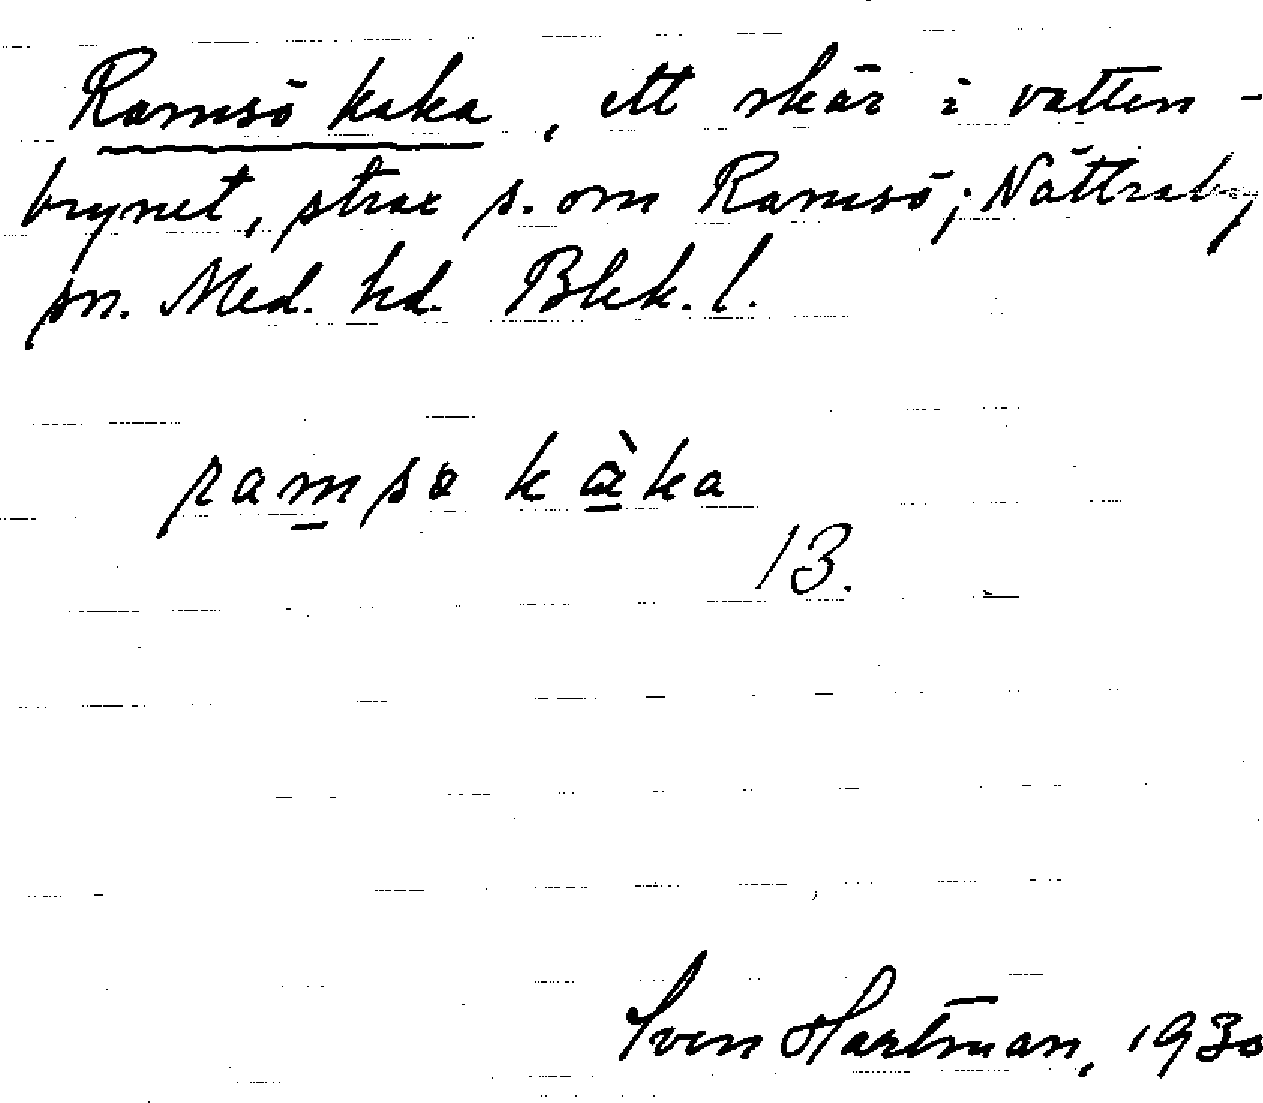 Ramsö kaka, ett skär i vatten-
brynet, strax s. om Ramsö; Nättraby
sn. Med. hd. Blek. l.
ramsö kàka
13.
Sven Hartman, 1930